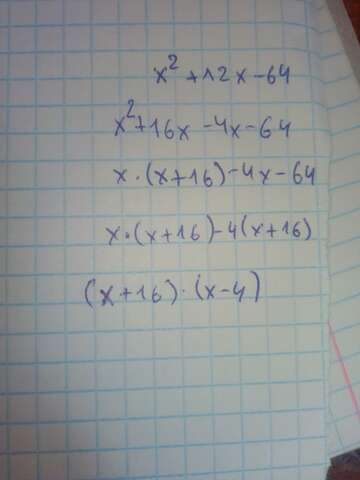 x² + 12x - 64
x² + 16x - 4x - 64
x · (x + 16) - 4x - 64
x · (x + 16) - 4(x + 16)
(x + 16) · (x - 4)